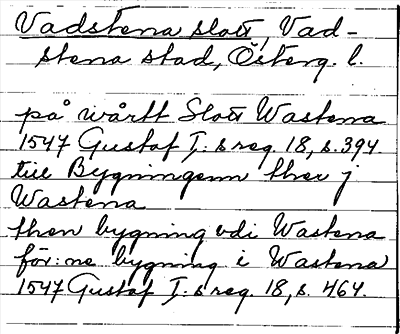 Vadstena slott, Vad-
stena stad, Österg. l.
på wårtt Slott Wastena
1547 Gustaf I:s reg. 18, s. 394.
till Bygningenn ther j
Wastena
then bygning vdi Wastena
för:ne bygning i Wastena
1547 Gustaf I:s reg. 18, s. 464.